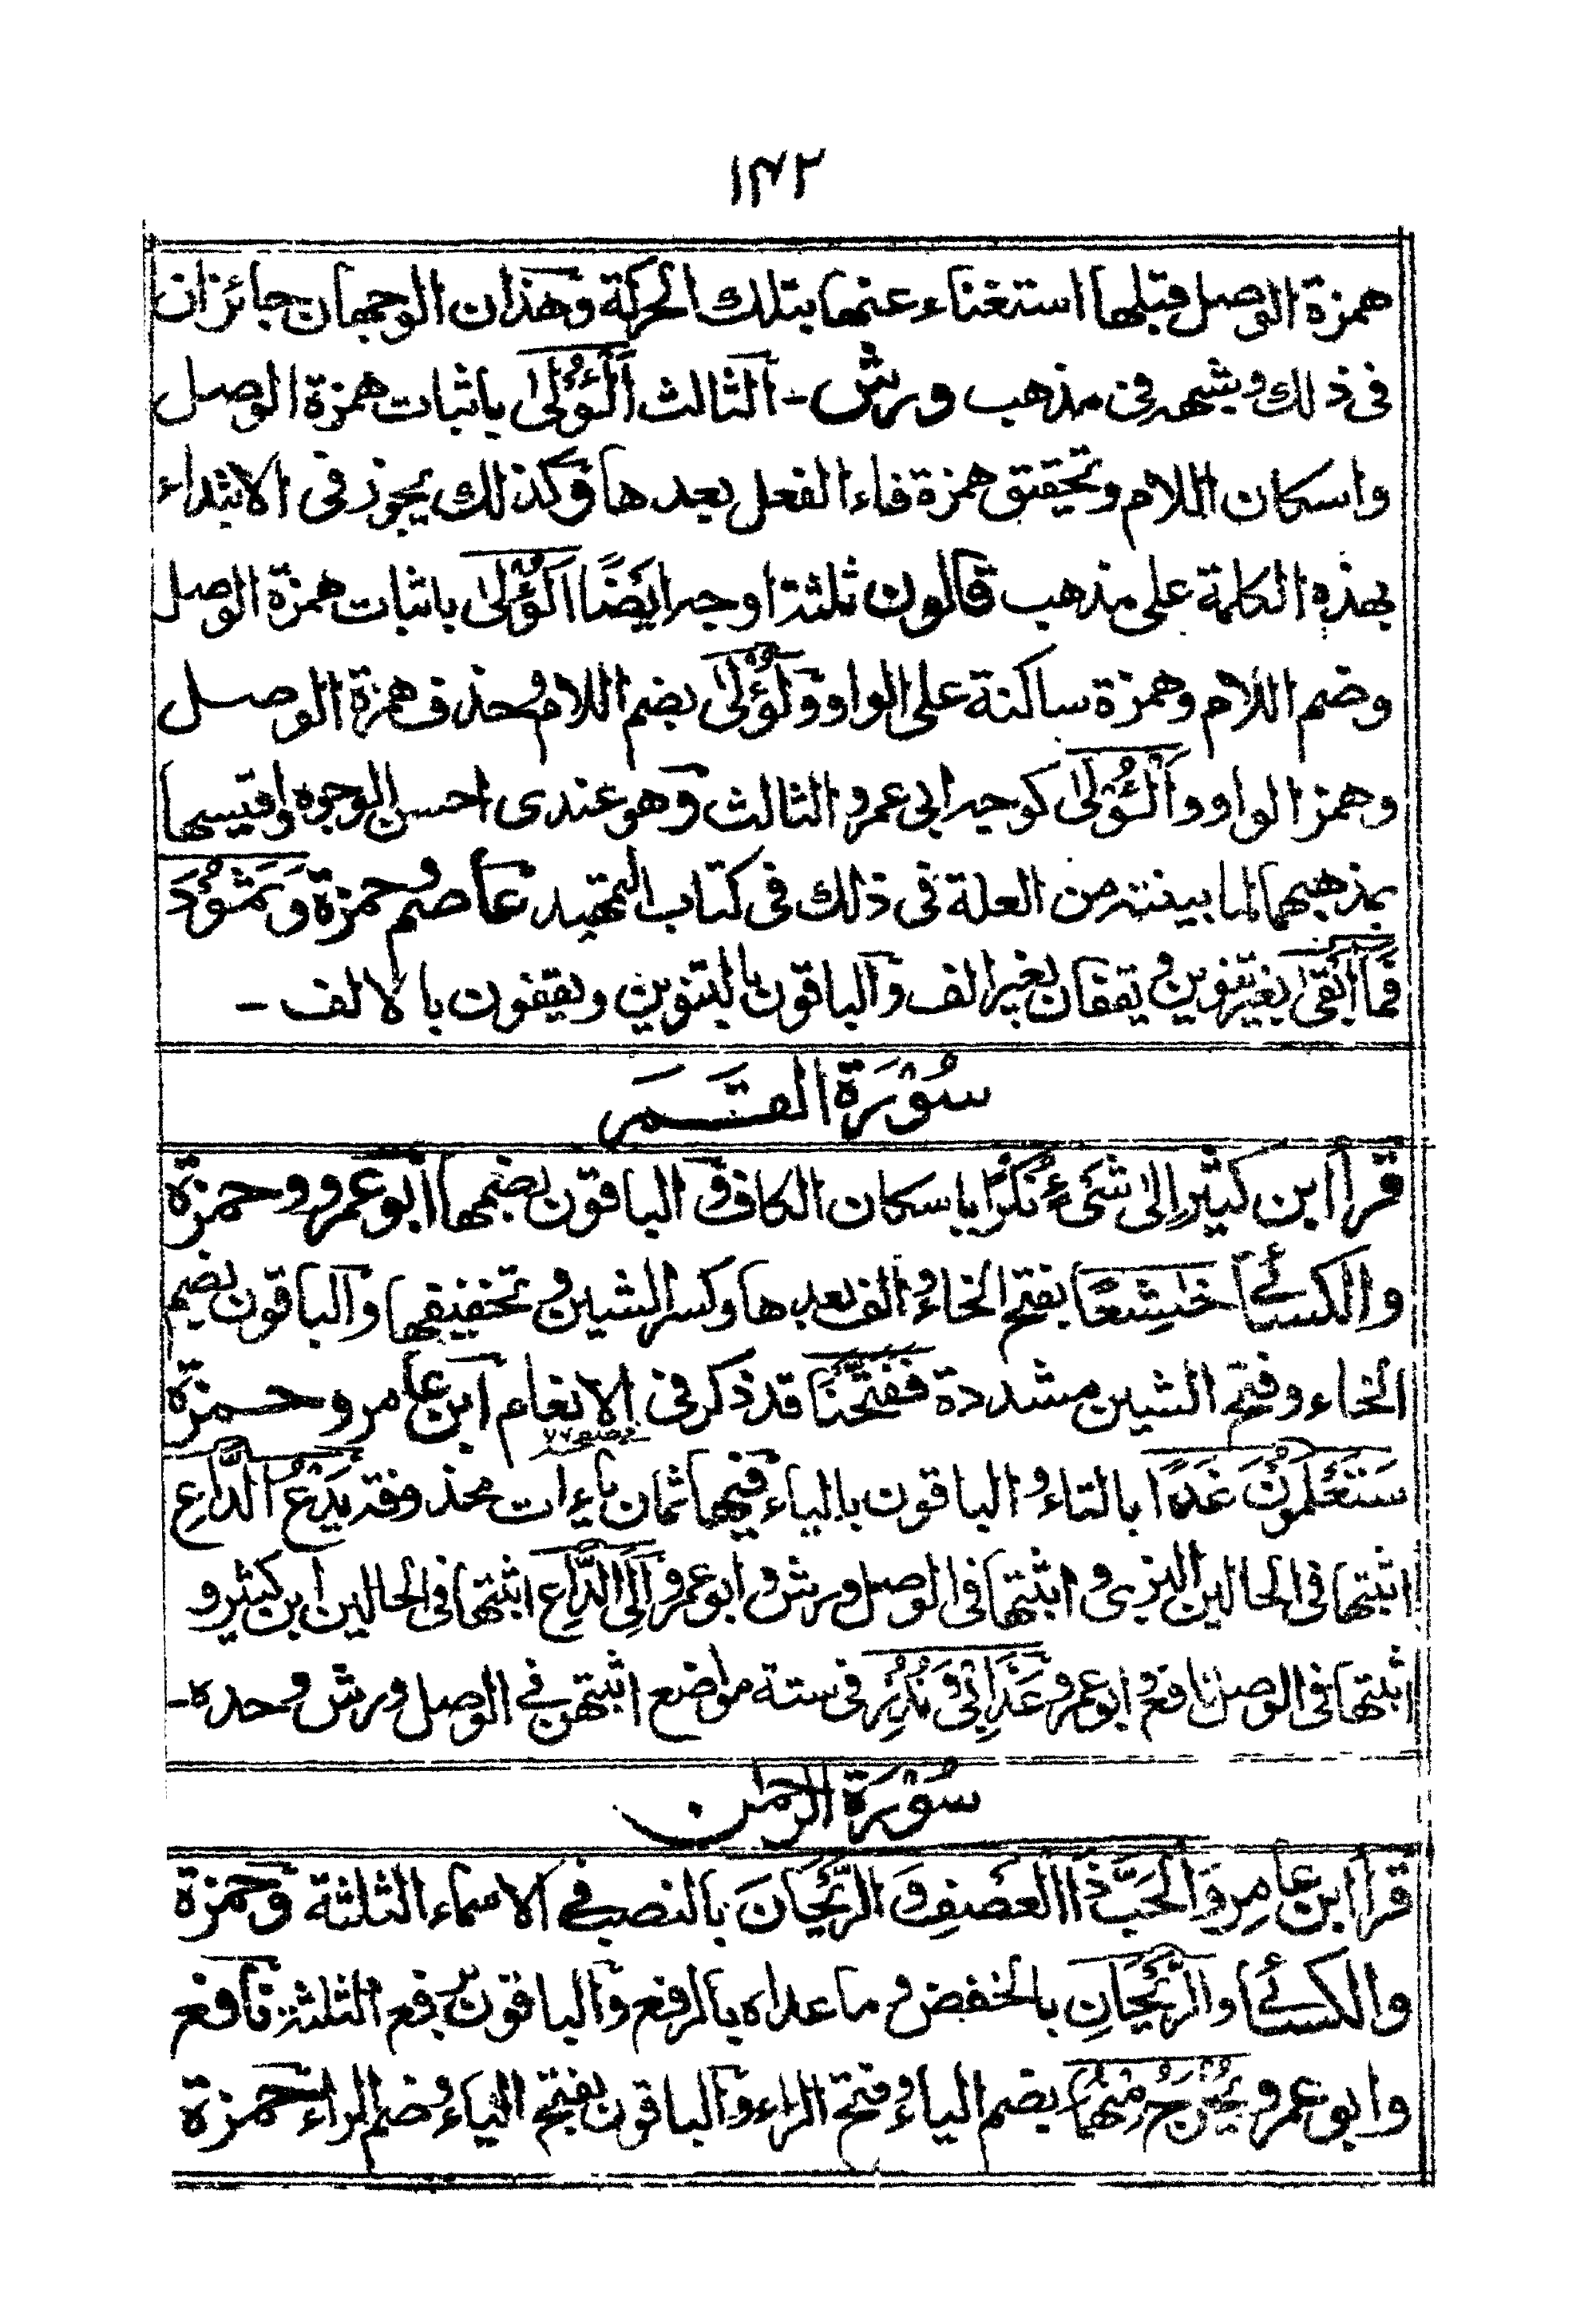 ١٤٢
همزة الوصل قبلها استغناء عنها بتلك الحركة وهذان الوجهان جائزان
فى ذلك وشبهه فى مذهب ورش - الثالث اَلْؤُلىٰ باثبات همزة الوصل
واسكان اللام وتحقيق همزة فاء الفعل بعدها وكذلك يجوز فى الابتداء
بهذه الكلمة على مذهب قالون ثلثة اوجه ايضًا اَلُؤْلىٰ باثبات همزة الوصل
وضم اللام وهمزة ساكنة على الواو ولُؤْلىٰ بضم اللام وحذف همزة الوصل
وهمز الواو واَلْؤُلىٰ كوجه ابى عمرو الثالث وهو عندى احسن الوجوه واقيسها
بمذهبهما لما بينته من العلة فى ذلك فى كتاب التمهيد عاصم وحمزة وَثَمُوْدَ
فَمَا اَبْقىٰ بغير تنوين ويقفان بغير الف والباقون بالتنوين ويقفون بالالف -
سُوْرَةُ القَمَر
قرأ ابن كثير اِلىٰ شَىْءٍ نُكْرٍ باسكان الكاف والباقون بضمها ابو عمرو وحمزة
والكسائى خَاشِعًا بفتح الخاء والف بعدها وكسر الشين وتخفيفها والباقون بضم
الخاء وفتح الشين مشددة فَفَتَحْنَا قد ذكر فى الانعام ابن عامر وحمزة
سَتَعْلَمُوْنَ غَدًا بالتاء والباقون بالياء فيها ثمان ياءات محذوفة يَدْعُ الدَّاعِ
اثبتها فى الحالين البزى واثبتها فى الوصل ورش وابو عمرو اِلَى الدَّاعِ اثبتها فى الحالين ابن كثير و
اثبتها فى الوصل نافع وابو عمرو عَذَابِىْ وَنُذُرِ فى ستة مواضع اثبتهن فى الوصل ورش وحده -
سُوْرَةُ الرحمٰن
قرأ ابن عامر وَالْحَبَّ ذَا العَصْفِ وَالرَّيْحَانَ بالنصب فى الاسماء الثلثة وحمزة
والكسائى والرَّيْحَانِ بالخفض وما عداه بالرفع والباقون برفع الثلثة نافع
وابو عمرو يُخْرَجُ مِنْهُمَا بضم الياء وفتح الراء والباقون بفتح الياء وضم الراء حمزة